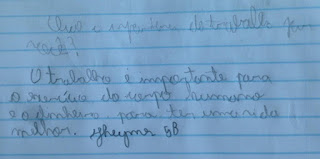 Qual a importância do trabalho para
você?
O trabalho é importante para
o exercício do corpo humano
e o dinheiro para ter uma vida
melhor.